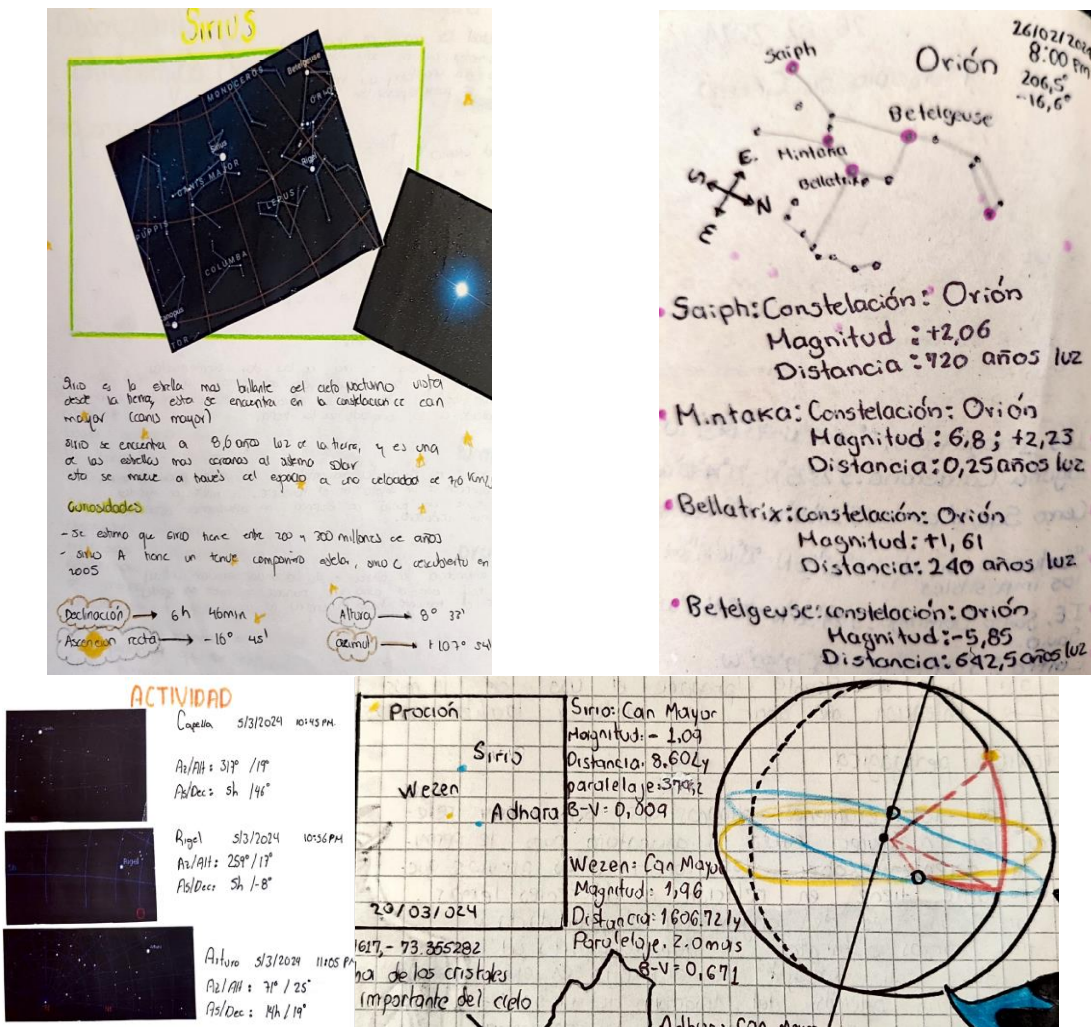 Sirius
MONOCEROS
Betelgeuse
ORION
Sirius
CANIS MAJOR
Rigel
LEPUS
PUPPIS
COLUMBA
anopus
TOR
Sirio es la estrella mas brillante del cielo nocturno vista
desde la tierra, esta se encuentra en la constelacion de can
mayor (canis mayor)
sirio se encuentra a 8,6 años luz de la tierra, y es una
de las estrellas mas cercanas al sistema solar
esta se mueve a través del espacio a una velocidad de 7,6 Km/s
Curiosidades
- Se estima que sirio tiene entre 200 y 300 millones de años
- sirio A tiene un tenue compañero estelar, sirio C descubierto en
2005
Declinación → 6h 46min
Ascencion recta → -16° 45'
Altura → 8° 33'
azimut → +107° 54'
26/02/2024
8:00 pm
206,5°
-16,6°
Orión
Saiph
Betelgeuse
Mintaka
Bellatrix
E.
S
N
E
Saiph: Constelación: Orión
Magnitud: +2,06
Distancia: 720 años luz
Mintaka: Constelación: Orión
Magnitud: 6,8; +2,23
Distancia: 0,25 años luz
Bellatrix: Constelación: Orión
Magnitud: +1,61
Distancia: 240 años luz
Betelgeuse: constelación: Orión
Magnitud: -5,85
Distancia: 642,5 años luz
ACTIVIDAD
Capella 5/3/2024 10:45 PM
Az/Alt: 317° / 19°
As/Dec: 5h / 46°
Rigel 5/3/2024 10:56 PM
Az/Alt: 259° / 17°
As/Dec: 5h / -8°
Rigel
Arturo 5/3/2024 11:05 PM
Az/Alt: 71° / 25°
As/Dec: 14h / 19°
Proción
Sirio
Wezen
Adhara
20/03/024
Sirio: Can Mayor
Magnitud: - 1,09
Distancia: 8.60Ly
B-V = 0,009
Wezen: Can Mayor
Magnitud: 1,96
Distancia: 1606.72 ly
Paralelaje: 2.0mas
B-V = 0,671
617, - 73.355282
na de los cristales
importante del cielo